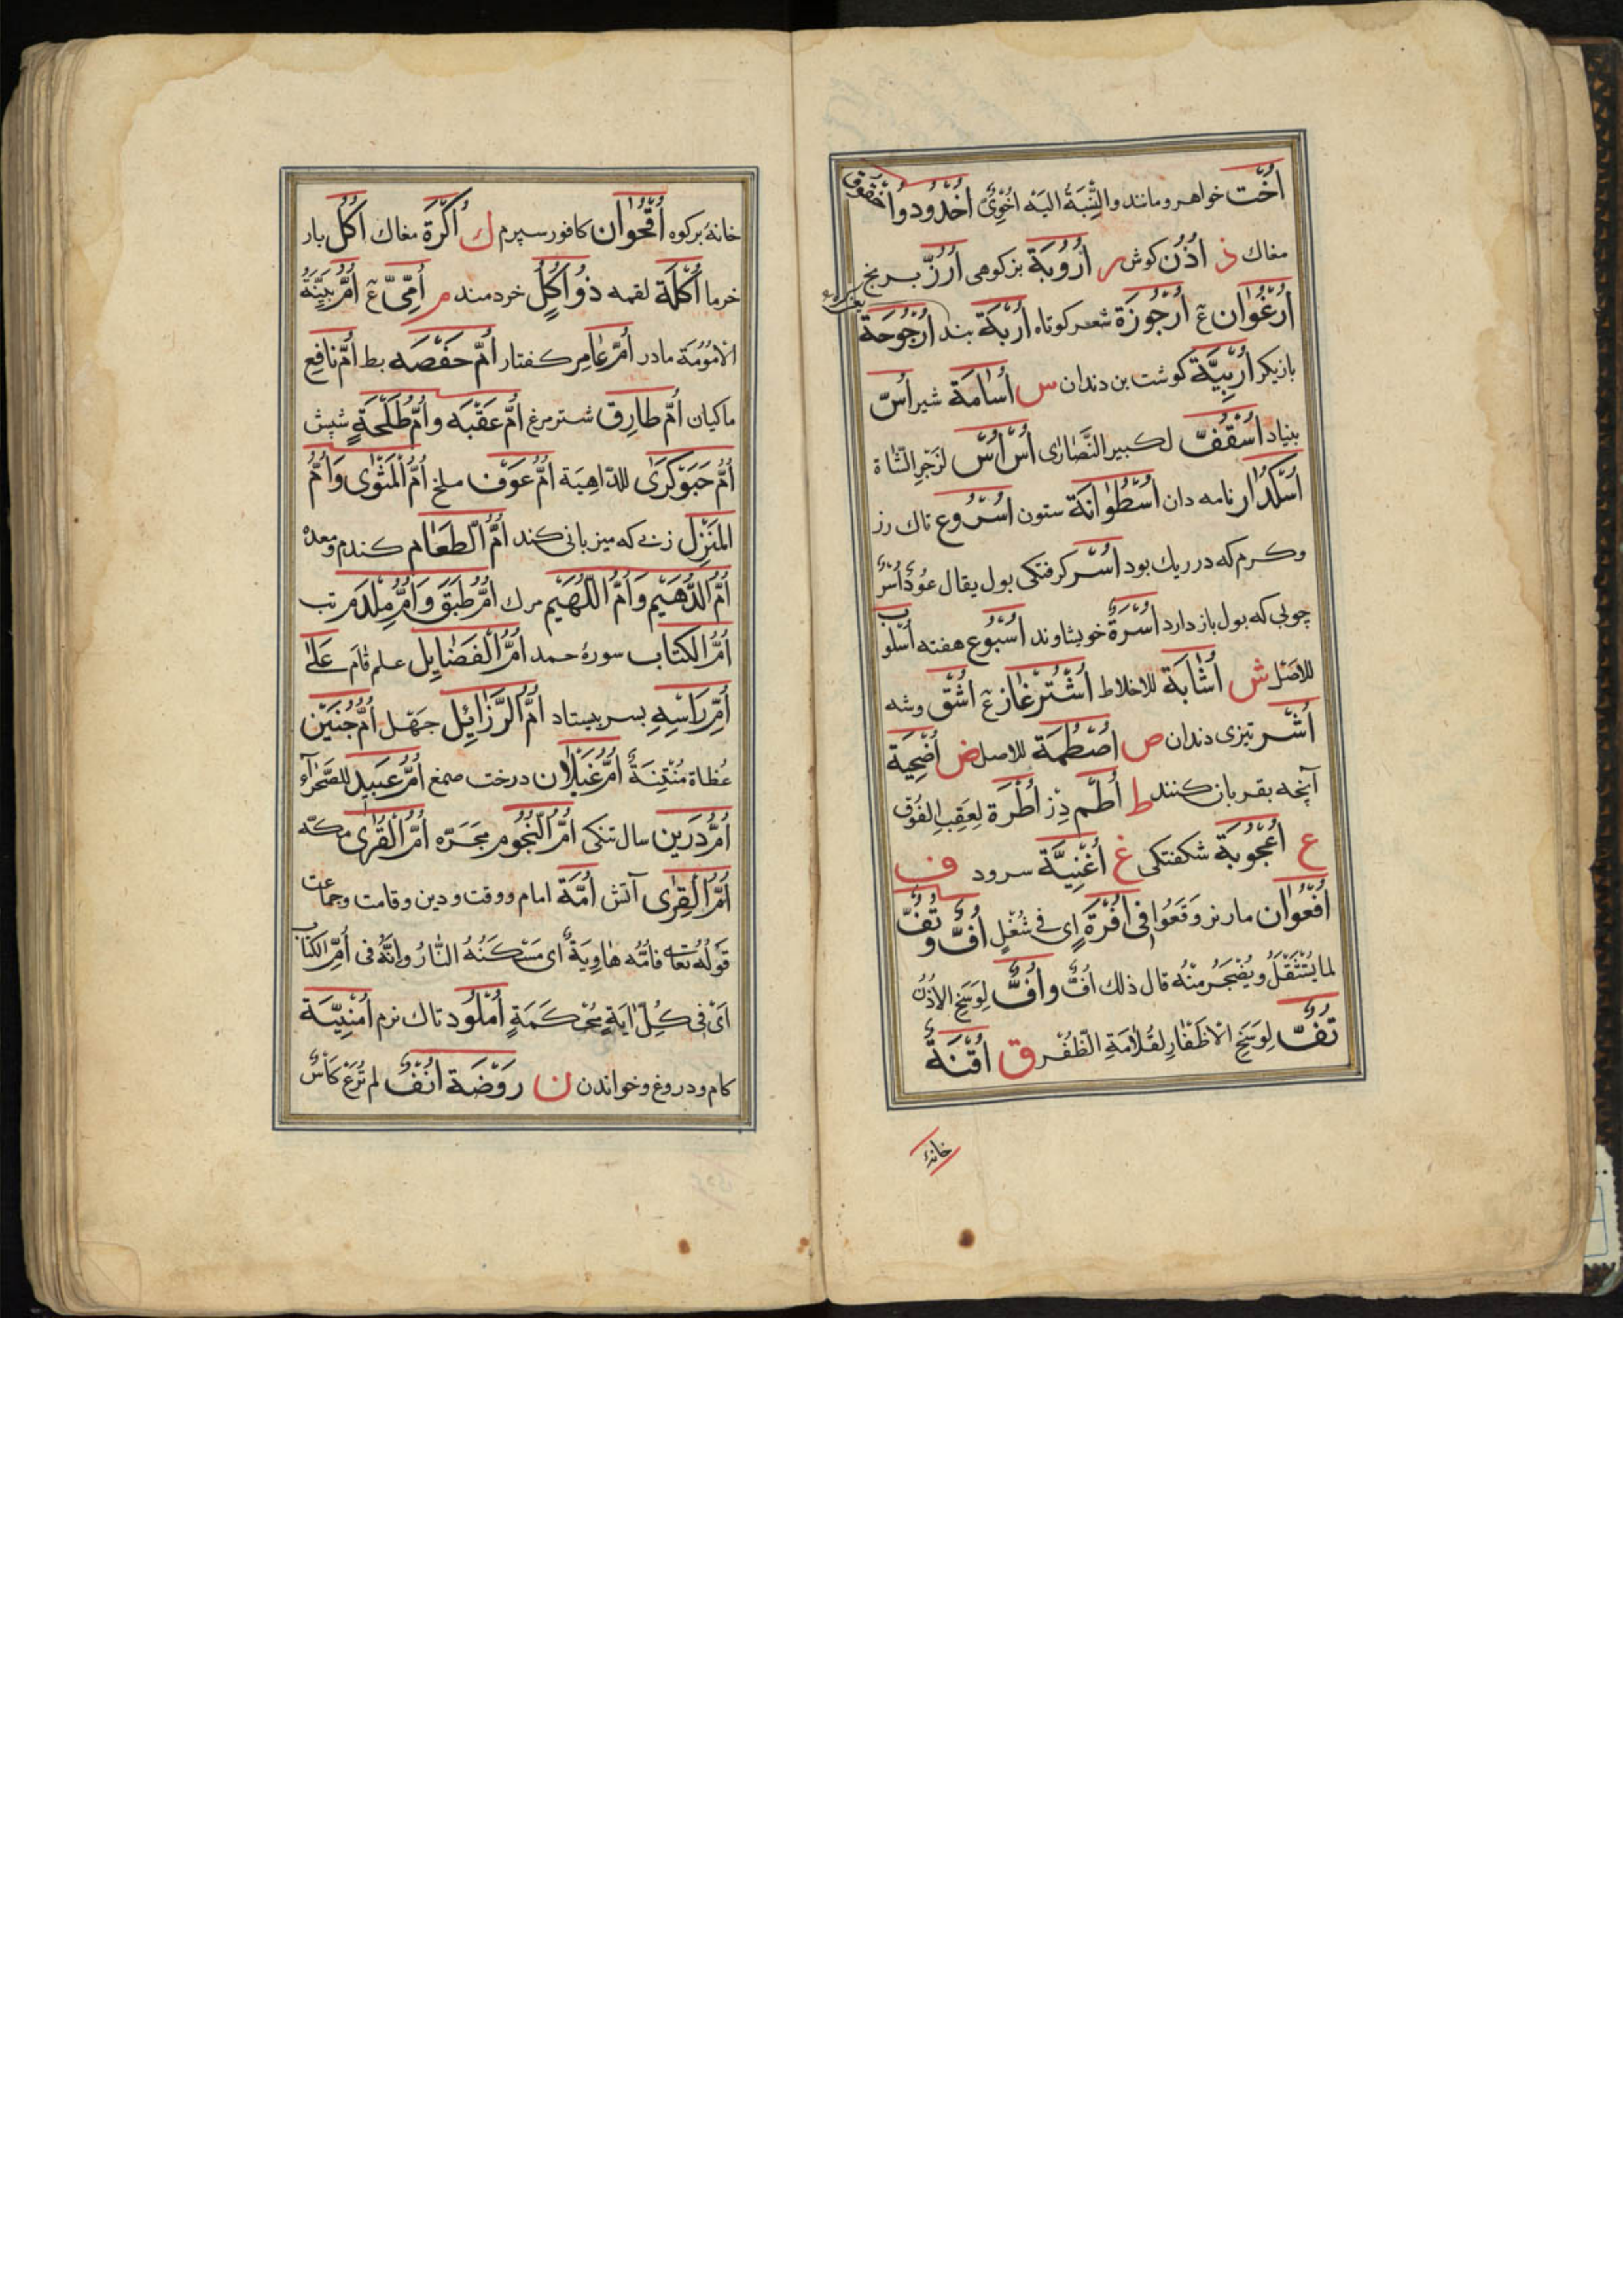 اُخْت خواهر و مانند والنِّسْبَةُ اليَهْ اُخَوِىٌّ اُخْدُود و اُخْقُوق
مغاك ذ اُذُن كوش ر اُرْوِيَة بزكوهى اُرُزّ برنج
اُرْغُوَان ع اُرْجُوزَة شعر كوتاه اُرْبَة بند اُرْجُوحَة
بازيكر اُرْبِيَّة كوشت بن دندان س اُسَامَة شير اُسّ
بنياد اُسْقُفّ لكبير النَّصَارٰى اُسْ اُسْ لزَجْرِ الشَّاة
اُسْكُدَار نامه دان اُسْطُوَانَة ستون اُسْرُوع تاك رز
وكرم كه در ريك بود اُسْر كرفتكى بول يقال عُودُ اُسْرٍ
چوبى كه بول باز دارد اُسْرَة خويشاوند اُسْبُوع هفته اُسْلُوب
للاصَل ش اُشَابَة للاخلاط اُشْتُرغَاز ع اُشَّق وشه
اُشُر تيزى دندان ص اُصْطُمَّة للاصل ض اُضْحِيَة
آنچه بقربان كنند ط اُطُم دِز اُطْرَة لِعَقِبِ الفُوق
ع اُعْجُوبَة شكفتكى غ اُغْنِيَّة سرود ف
اُفْعُوَان مار نر وَقَعُوا فى اُفُرَّةٍ اى فى شُغْلٍ اُفٌّ و تُفٌّ
لما يُسْتَثْقَلُ ويُضْجَرُ منْهُ قال ذلك اُفٌّ و اُفٌّ لِوَسَخِ الاُذُن
تُفٌّ لِوَسَخِ الاَظْفَارِ لقُلَامَةِ الظُّفْر ق اُقْنَةٌ
خانۀ
خانۀ بركوه اُقْحُوَان كافور سپرم ك اُكْرَة مغاك اُكُل بار
خرما اُكْلَة لقمه ذُو اُكُلٍ خردمند م اُمِّىّ ع اُمٌّ بَيِّنَةُ
الاُمُومَة مادر اُمّ عَامِر كفتار اُمّ حَفْصَه بط اُمّ نَافِع
ماكيان اُمّ طَارِق شترمرغ اُمّ عَقَبَه و اُمّ طَلْحَةٍ شپش
اُمُّ حَبَوْكَرَى للدّاهِيَة اُمُّ عَوْف ملخ اُمُّ الْمَثْوٰى وَاُمُّ
المَنْزِل زنى كه ميزبانى كند اُمُّ الطَعَام كندم ومعده
اُمُّ الدُّهَيْم وَاُمُّ اللُّهَيْم مرك اُمُّ طَبَقٍ وَاُمُّ مِلْدَم تب
اُمُّ الكتاب سورۀ حمد اُمُّ الْفَضَايِل علم قَام عَلٰى
اُمِّ رَاسِهِ بسر بيستاد اُمُّ الرَّزَائِل جَهْل اُمُّ حُبَيْن
عُظاة مُنْتِنَةٌ اُمُّ غَيْلَان درخت صمغ اُمُّ عُبَيد للصَّحْرَاء
اُمُّ دَرِين سال تنكى اُمُّ النُّجُوم مَجَرّه اُمُّ الْقُرٰى مكّه
اُمُّ الْقِرٰى آتش اُمَّة امام ووقت ودين وقامت وجماعت
قوْلُه تعالٰى فاُمُّه هَاوِيَةٌ اى مَسْكَنُهُ النَّارُ وانّهُ فى اُمِّ الكتاب
اَىْ فى كُلِّ اٰيَةٍ مُحْكَمَةٍ اُمْلُود تاك نرم اُمْنِيَّة
كام ودروغ وخواندن ن رَوْضَة اُنُفٌ لم تُرْعَ كَأسٌ